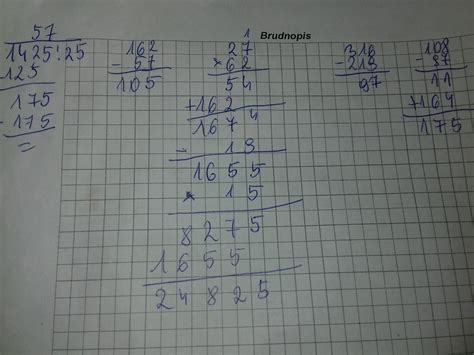 Brudnopis
57
1425:25
125
175
- 175
=
162
- 57
105
1
27
× 62
54
+162
1674
- 19
1655
× 15
8275
1655
24825
316
- 219
97
108
- 97
11
+164
175